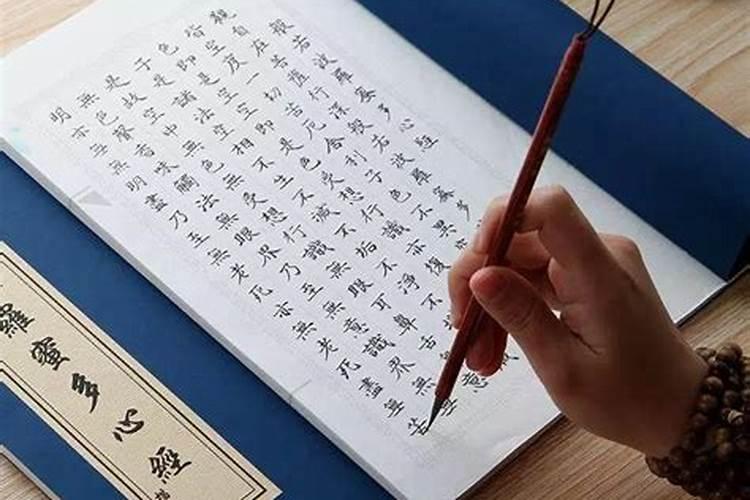 般若波羅蜜多心經
觀自在菩薩行深般若波羅蜜多
皆空度一切苦厄舍利子色不異空
色即是空空即是色受想行識亦復
子是諸法空相不生不滅不垢不淨不
是故空中無色無受想行識無眼耳鼻舌
意
無色聲香味觸法無眼界乃至無意識界無無
明亦無無明盡乃至無老死亦無老死盡無苦
羅蜜多心經